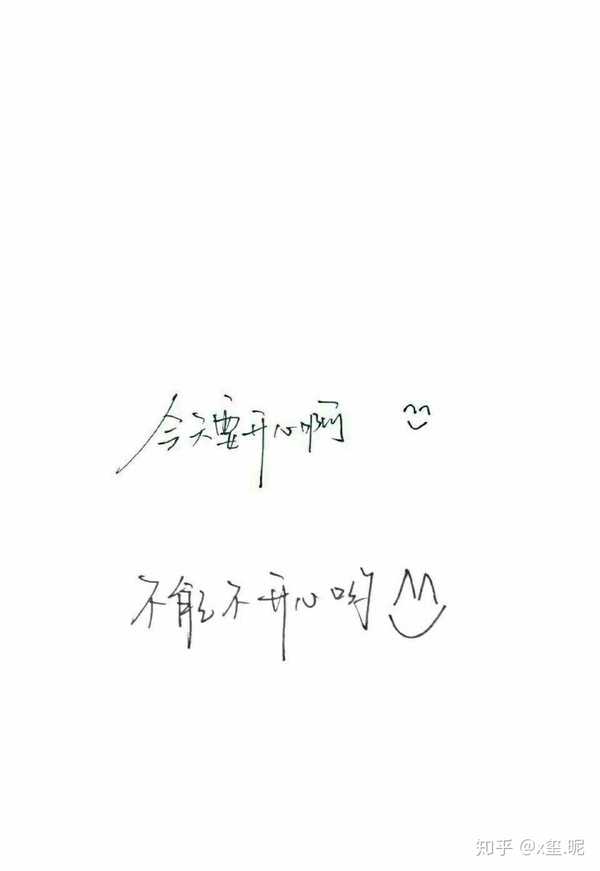 今天要开心啊
不能不开心哟
知乎 @x玺.昵